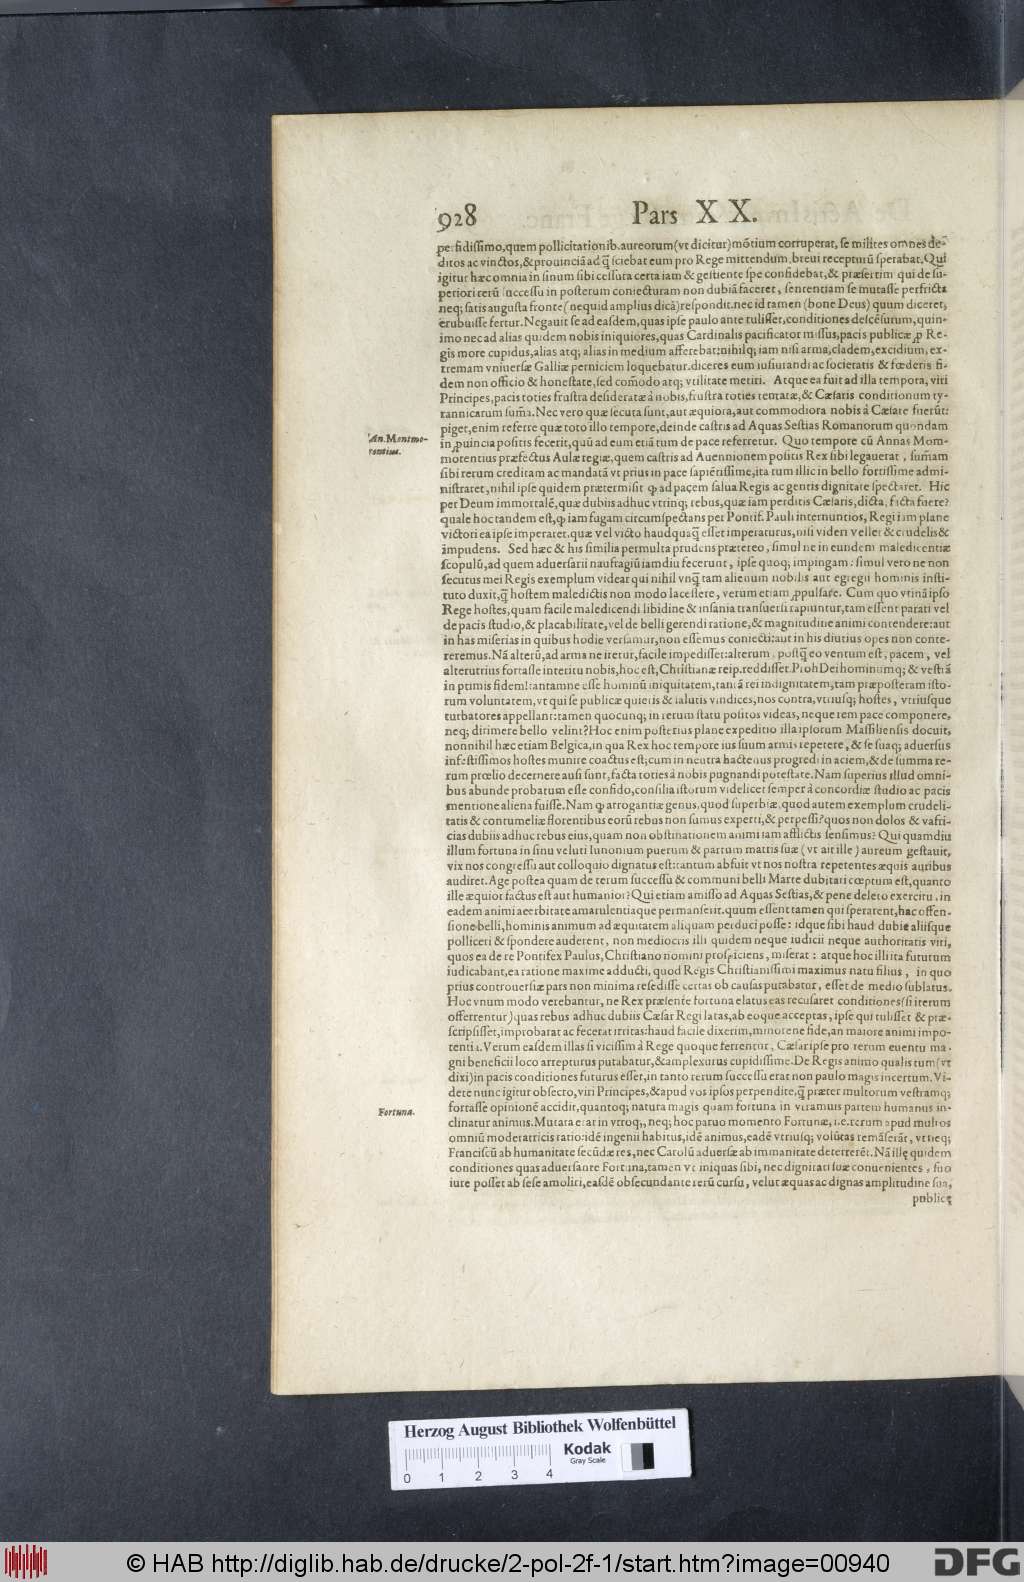 928 Pars XX.
perfidissimo, quem pollicitationib. aureorum (vt dicitur) mõtium corruperat, se milites omnes de-
ditos ac vinctos, & prouinciã ad q̃ sciebat eum pro Rege mittendum, breui recepturũ sperabat. Qui
igitur hæc omnia in sinum sibi cessura certa iam & gestiente spe confidebat, & præsertim qui de su-
periori rerũ successu in posterum coniecturam non dubiã faceret, sententiam se mutasse perfricta
neq; satis augusta fronte (nequid amplius dicã) respondit. nec id tamen (bone Deus) quum diceret,
erubuisse fertur. Negauit se ad easdem, quas ipse paulo ante tulisset, conditiones descẽsurum, quin-
imo nec ad alias quidem nobis iniquiores, quas Cardinalis pacificator missus, pacis publicæ ꝓ Re-
gis more cupidus, alias atq; alias in medium afferebat: nihilq; iam nisi arma, cladem, excidium, ex-
tremam vniuersæ Galliæ perniciem loquebatur. diceres eum iusiurandi ac societatis & fœderis fi-
dem non officio & honestate, sed com̃odo atq; vtilitate metiri. Atque ea fuit ad illa tempora, viri
Principes, pacis toties frustra desideratæ à nobis, frustra toties tentatæ, & Cæsaris conditionum ty-
rannicarum sum̃a. Nec vero quæ secuta sunt, aut æquiora, aut commodiora nobis à Cæsare fuerũt:
piget, enim referre quæ toto illo tempore, deinde castris ad Aquas Sestias Romanorum quondam
An. Montmo-
rontius.
in ꝓuincia positis fecerit, quũ ad eum etiã tum de pace referretur. Quo tempore cũ Annas Mom-
morentius præfectus Aulæ regiæ, quem castris ad Auennionem positis Rex sibi legauerat, sum̃am
sibi rerum creditam ac mandatã vt prius in pace sapiẽtissime, ita tum illic in bello fortissime admi-
nistraret, nihil ipse quidem prætermisit ꝙ ad pacem salua Regis ac gentis dignitate spectaret. Hic
per Deum immortalẽ, quæ dubiis adhuc vtrinq; rebus, quæ iam perditis Cæsaris, dicta, facta fuere?
quale hoc tandem est, ꝙ iam fugam circumspectans per Pontif. Pauli internuntios, Regi iam plane
victori ea ipse imperaret. quæ vel victo haudquaq̃ esset imperaturus, nisi videri vellet & crudelis &
impudens. Sed hæc & his similia permulta prudens prætereo, simul ne in eundem maledicentiæ
scopulũ, ad quem aduersarii naufragiũ iamdiu fecerunt, ipse quoq; impingam: simul vero ne non
secutus mei Regis exemplum videar qui nihil vnq̃ tam alienum nobilis aut egregii hominis insti-
tuto duxit, q̃ hostem maledictis non modo lacessere, verum etiam ꝓpulsare. Cum quo vtinã ipso
Rege hostes, quam facile maledicendi libidine & insania transuersi rapiuntur, tam essent parati vel
de pacis studio, & placabilitate, vel de belli gerendi ratione, & magnitudine animi contendere: aut
in has miserias in quibus hodie versamur, non essemus coniecti: aut in his diutius opes non conte-
reremus. Nã alterũ, ad arma ne iretur, facile impedisset: alterum, postq̃ eo ventum est, pacem, vel
alterutrius fortasse interitu nobis, hoc est, Christianæ reip. reddisset. Proh Dei hominumq; & vestrã
in primis fidem! tantamne esse hominũ iniquitatem, tantã rei indignitatem, tam præposteram isto-
rum voluntatem, vt qui se publicæ quietis & salutis vindices, nos contra, vtriusq; hostes, vtriusque
turbatores appellant: tamen quocunq; in rerum statu positos videas, neque rem pace componere,
neq; dirimere bello velint? Hoc enim posterius plane expeditio illa ipsorum Massiliensis docuit,
nonnihil hæc etiam Belgica, in qua Rex hoc tempore ius suum armis repetere, & se suaq; aduersus
infestissimos hostes munire coactus est; cum in neutra hactenus progredi in aciem, & de summa re-
rum prœlio decernere ausi sunt, facta toties à nobis pugnandi potestate. Nam superius illud omni-
bus abunde probatum esse confido, consilia istorum videlicet semper à concordiæ studio ac pacis
mentione aliena fuisse. Nam ꝙ arrogantiæ genus, quod superbiæ, quod autem exemplum crudeli-
tatis & contumeliæ florentibus eorũ rebus non sumus experti, & perpessi? quos non dolos & vafri-
cias dubiis adhuc rebus eius, quam non obstinationem animi iam afflictis sensimus? Qui quamdiu
illum fortuna in sinu veluti Iunonium puerum & partum matris suæ (vt ait ille) aureum gestauit,
vix nos congressu aut colloquio dignatus est: tantum abfuit vt nos nostra repetentes æquis auribus
audiret. Age postea quam de rerum successu & communi belli Marte dubitari cœptum est, quanto
ille æquior factus est aut humanior? Qui etiam amisso ad Aquas Sestias, & pene deleto exercitu, in
eadem animi acerbitate amarulentiaque permanserit. quum essent tamen qui sperarent, hac offen-
sione belli, hominis animum ad æquitatem aliquam perduci posse: idque sibi haud dubie aliisque
polliceri & spondere auderent, non mediocris illi quidem neque iudicii neque authoritatis viri,
quos ea de re Pontifex Paulus, Christiano nomini prospiciens, miserat: atque hoc illi ita futurum
iudicabant, ea ratione maxime adducti, quod Regis Christianissimi maximus natu filius, in quo
prius controuersiæ pars non minima resedisse certas ob causas putabatur, esset de medio sublatus.
Hoc vnum modo verebantur, ne Rex præsente fortuna elatus eas recusaret conditiones (si iterum
offerrentur) quas rebus adhuc dubiis Cæsar Regi latas, ab eoque acceptas, ipse qui tulisset & præ-
scripsisset, improbarat ac fecerat irritas: haud facile dixerim, minorene fide, an maiore animi impo-
tentia. Verum easdem illas si vicissim à Rege quoque ferrentur, Cæsar ipse pro rerum euentu ma-
gni beneficii loco arrepturus putabatur, & amplexurus cupidissime. De Regis animo qualis tum (vt
dixi) in pacis conditiones futurus esset, in tanto rerum successu erat non paulo magis incertum. Vi-
dete nunc igitur obsecro, viri Principes, & apud vos ipsos perpendite, q̃ præter multorum vestramq;
Fortuna.
fortasse opinionẽ accidit, quantoq; natura magis quam fortuna in vtramuis partem humanus in-
clinatur animus. Mutata erat in vtroq;, neq; hoc paruo momento Fortunæ, i.e. rerum apud multos
omniũ moderatricis ratio: idẽ ingenii habitus, idẽ animus, eadẽ vtriusq; volũtas remãserat, vt neq;
Franciscũ ab humanitate secũdæ res, nec Carolũ aduersæ ab immanitate deterrerẽt. Nã illę quidem
conditiones quas aduersante Fortuna, tamen vt iniquas sibi, nec dignitati suæ conuenientes, suo
iure posset ab sese amoliri, easdẽ obsecundante rerũ cursu, velut æquas ac dignas amplitudine sua,
publicę
Herzog August Bibliothek Wolfenbüttel
Kodak
Gray Scale
0 1 2 3 4
© HAB http://diglib.hab.de/drucke/2-pol-2f-1/start.htm?image=00940 DFG